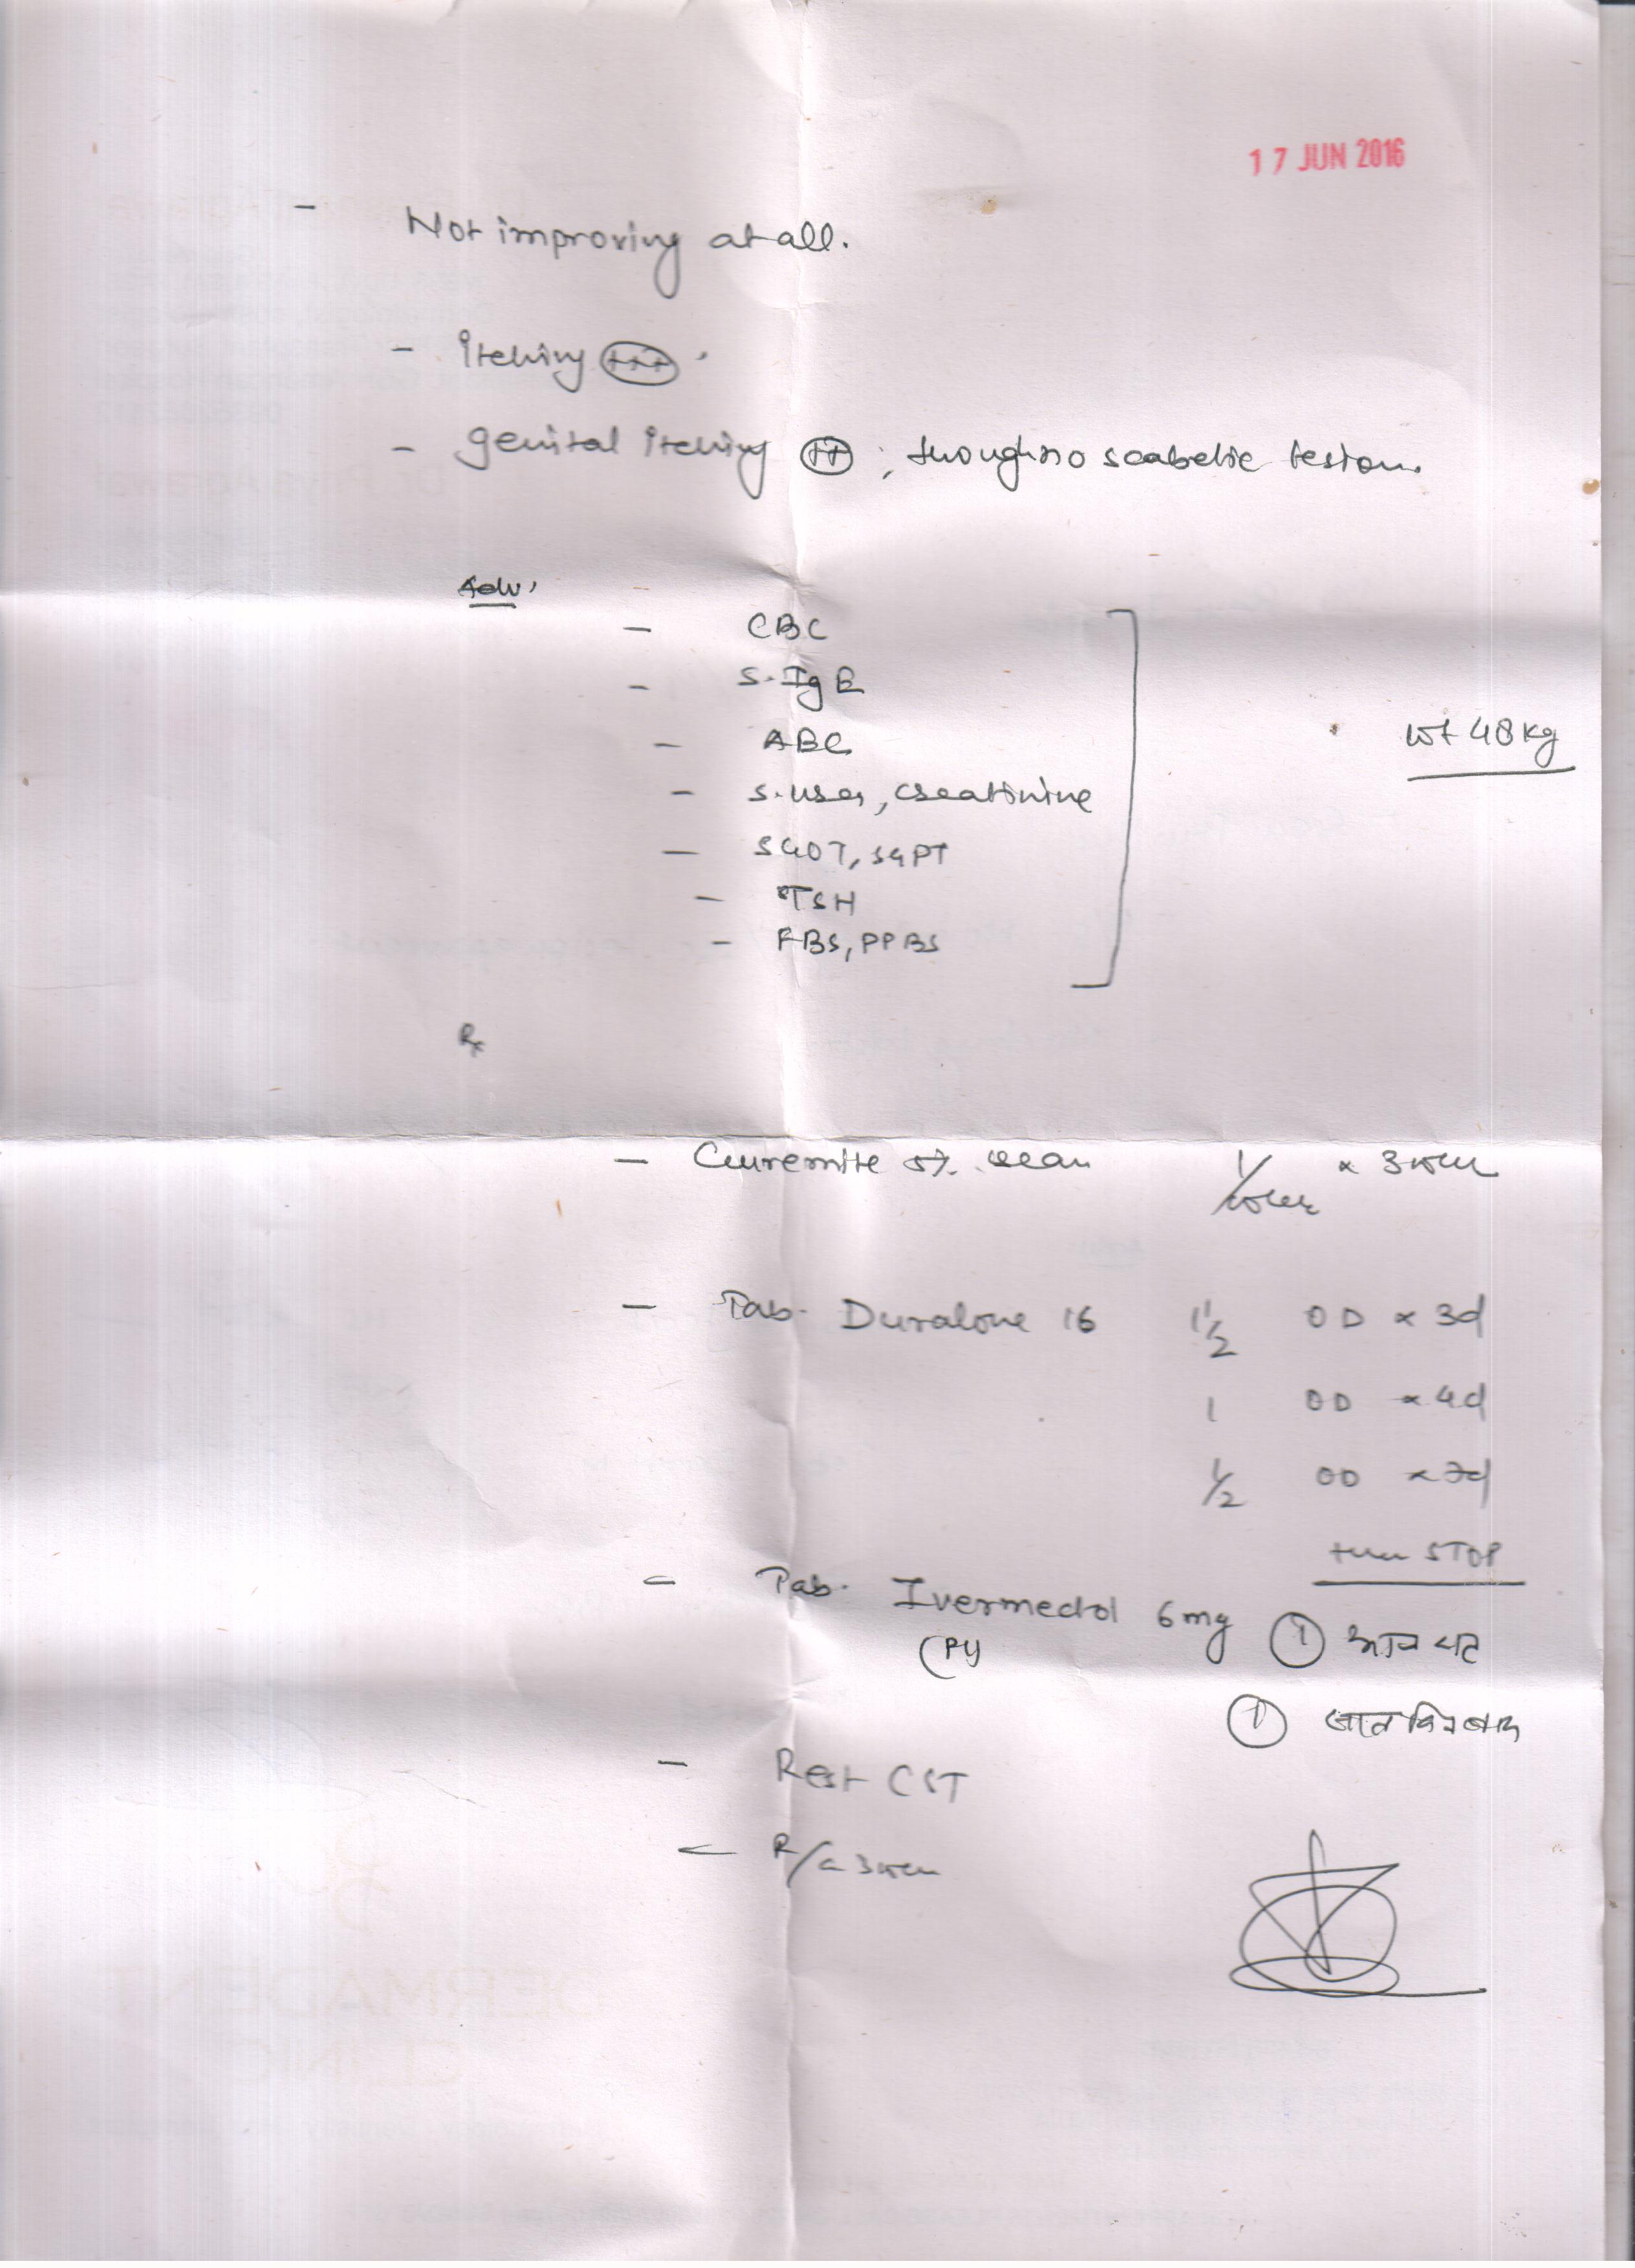 17 JUN 2016
- Not improving at all.
- Itching +++
- genital itching ++ ; though no scabetic lesion.
Adv.
- CBC
- S. IgE
- AEC
- S. urea, creatinine
- SGOT, SGPT
- TSH
- FBS, PPBS
wt 48 kg
Rx
- 5% cream 1/week x 3 week
- Tab. Duralone 16 1 1/2 OD x 3d
1 OD x 4d
1/2 OD x 7d
then STOP
- Tab. Ivermectol 6 mg 1
1 सात दिन बाद
- Rest CST
- R/a 3 week
DERMADENT
CLINIC